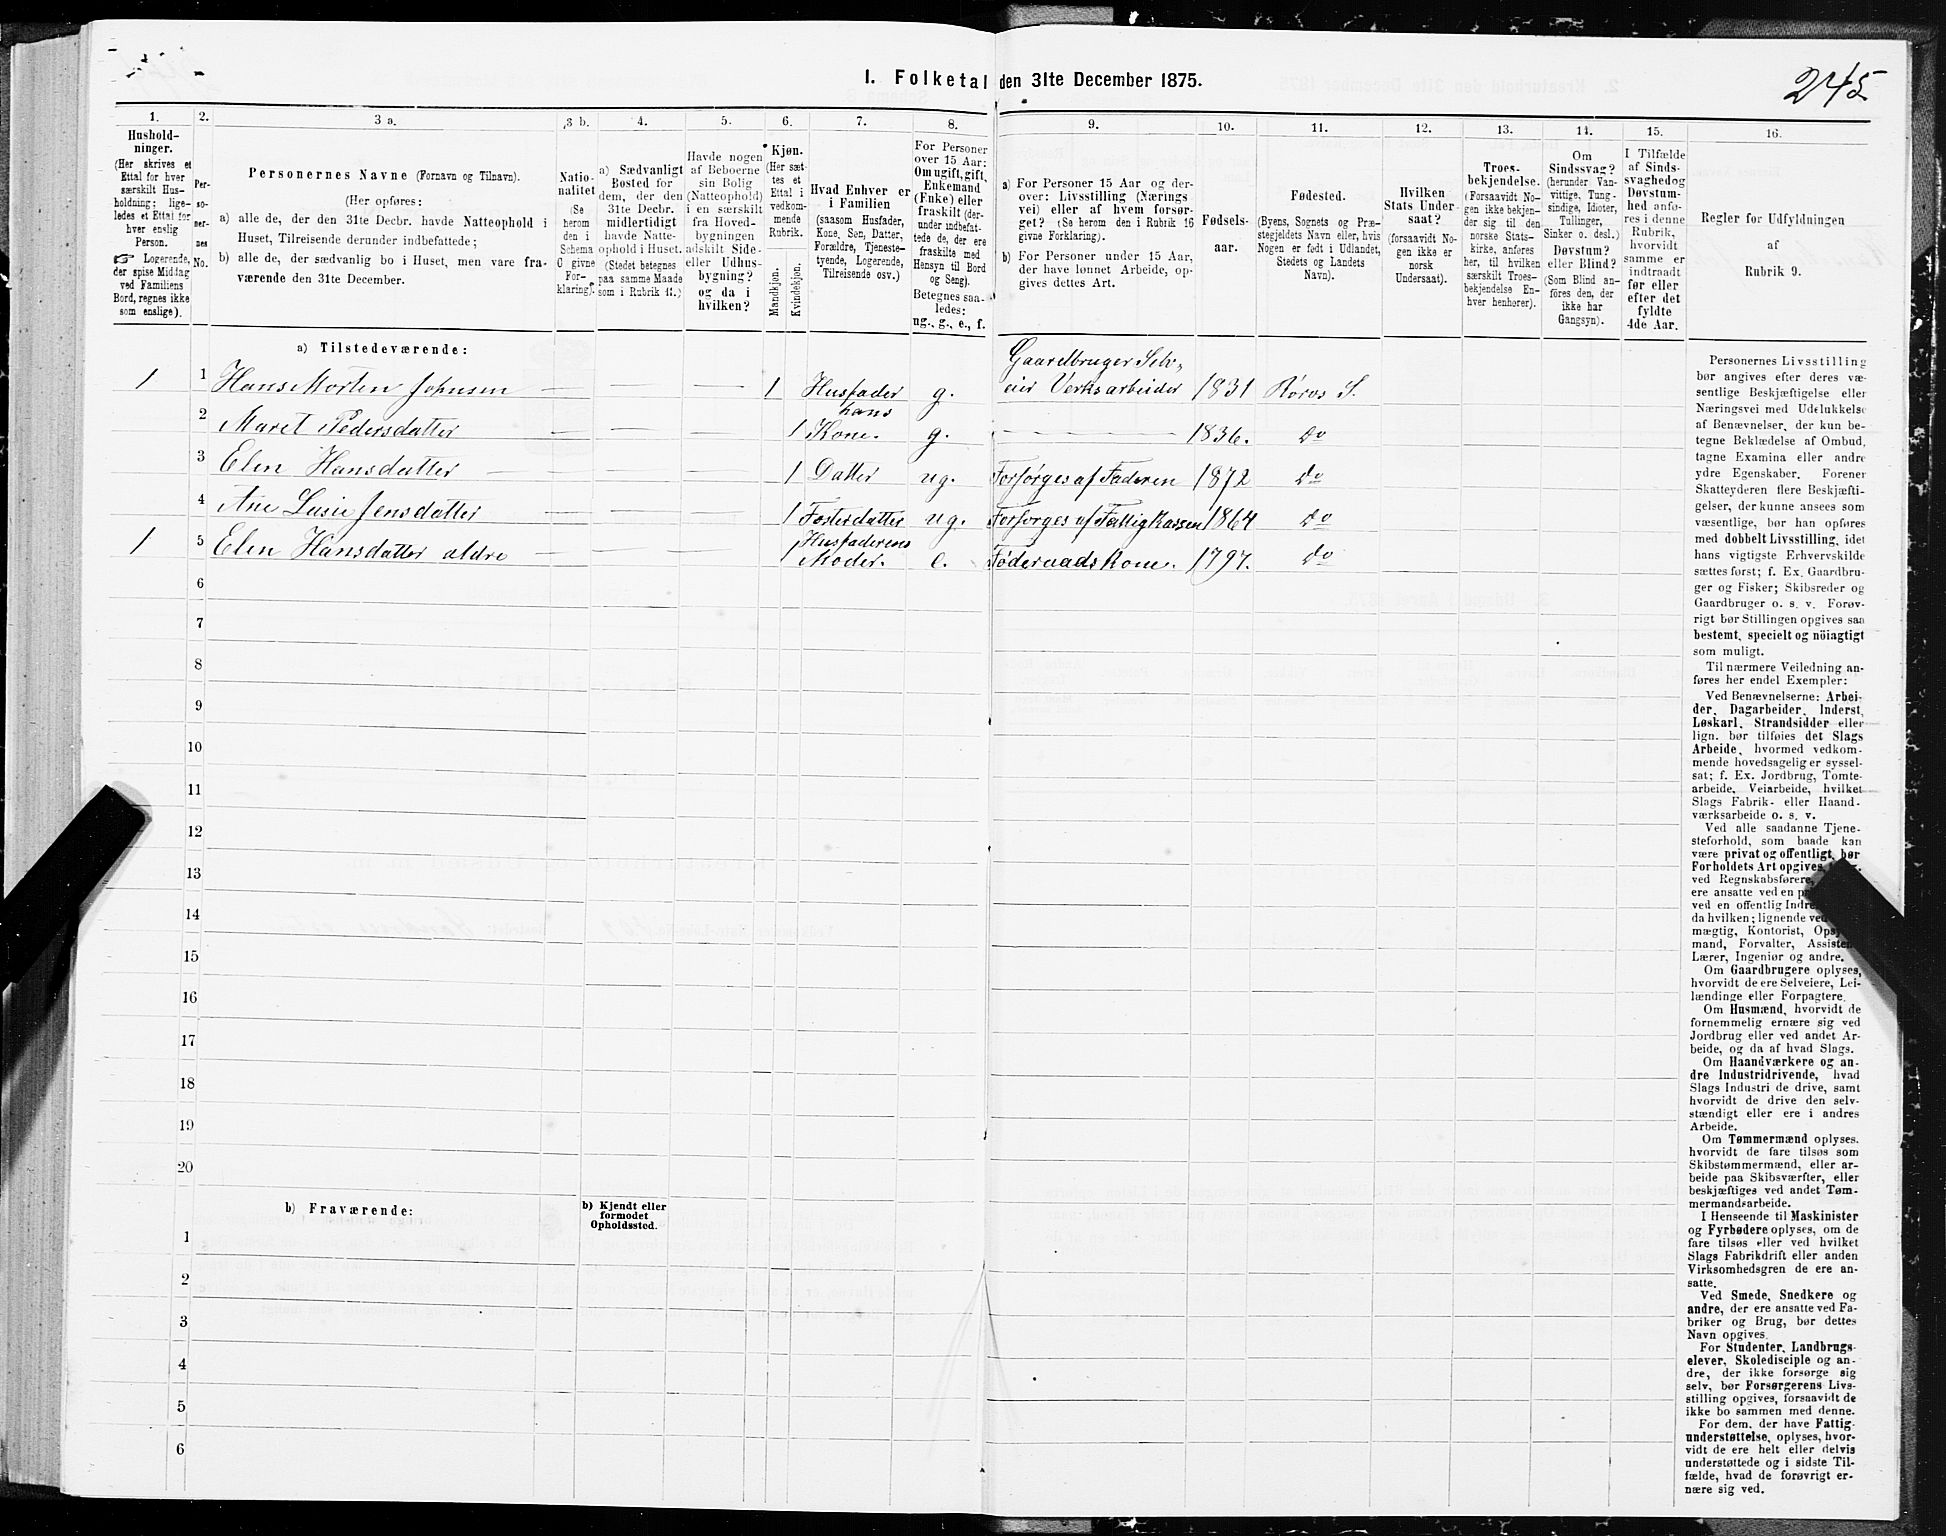 I. Folketal den 31te December 1875.
245
1.
Hushold-
ninger.
(Her skrives et
Ettal for hver
særskilt Hus-
holdning; lige-
ledes et Ettal for
hver enslig
Person.
☞ Logerende,
der spise Middag
ved Familiens
Bord, regnes ikke
som enslige).
2.
Per-
so-
ner-
nes
No.
3 a.
Personernes Navne (Fornavn og Tilnavn).
(Her opføres:
a) alle de, der den 31te Decbr. havde Natteophold i
Huset, Tilreisende derunder indbefattede;
b) alle de, der sædvanlig bo i Huset, men vare fra-
værende den 31te December.
3 b.
Natio-
nalitet
(Se
herom
den i
Schema
G givne
For-
klaring).
4.
a) Sædvanligt
Bosted for
dem, der den
31te Decbr.
midlertidigt
havde Natte-
ophold i Huset.
(Stedet betegnes
paa samme Maade
som i Rubrik 11.)
5.
Havde nogen
af Beboerne
sin Bolig
(Natteophold)
i en særskilt
fra Hoved-
bygningen
adskilt Side-
eller Udhus-
bygning?
og da i
hvilken?
6.
Kjøn.
(Her sæt-
tes et
Ettal i
vedkom-
mende
Rubrik.
Mandkjøn.
Kvindekjøn.
7.
Hvad Enhver er
i Familien
(saasom Husfader,
Kone, Søn, Datter,
Forældre, Tjeneste-
tyende, Logerende,
Tilreisende osv.)
8.
For Personer
over 15 Aar:
Om ugift, gift,
Enkemand
(Enke) eller
fraskilt (der-
under indbefat-
tede de, der ere
fraskilte med
Hensyn til Bord
og Seng).
Betegnes saa-
ledes:
ug., g., e., f.
9.
a) For Personer 15 Aar og der-
over: Livsstilling (Nærings-
vei) eller af hvem forsør-
get? (Se herom den i Rubrik 16
givne Forklaring).
b) For Personer under 15 Aar,
der have lønnet Arbeide, op-
gives dettes Art.
10.
Fødsels-
aar.
11.
Fødested.
(Byens, Sognets og Præ-
stegjeldets Navn eller, hvis
Nogen er født i Udlandet,
Stedets og Landets
Navn).
12.
Hvilken
Stats Under-
saat?
(forsaavidt No-
gen ikke er
norsk
Undersaat).
13.
Troes-
bekjendelse.
(Forsaavidt No-
gen ikke bekjen-
der sig til den
norske Stats-
kirke, anføres
her, til hvilken
særskilt Troes-
bekjendelse En-
hver henhører).
14.
Om
Sindssvag?
(herunder Van-
vittige, Tung-
sindige, Idioter,
Tullinger,
Sinker o. desl.)
Døvstum?
eller Blind?
(Som Blind an-
føres den, der
ikke har
Gangsyn).
15.
I Tilfælde
af Sinds-
svaghed og
Døvstum-
hed anfø-
res i denne
Rubrik,
hvorvidt
samme er
indtraadt
før eller
efter det
fyldte
4de Aar.
16.
Regler for Udfyldningen
af
Rubrik 9.
a) Tilstedeværende:
1 1 Hans Morten Johnsen 1 Husfader g. Gaardbruger Selv- eier Verksarbeider 1831 Røros S.
2 Maret Pedersdatter 1 hans Kone. g. 1836. Do
3 Elen Hansdatter 1 Datter ug. Forsørges af Faderen 1872 Do
4 Ane Lusie Jensdatter 1 Fosterdatter ug. Forsørges af Fattigkassen 1864 Do
1 5 Elen Hansdatter ældre 1 Husfaderens Moder. e. Føderaadskone. 1797. Do
6
7
8
9
10
11
12
13
14
15
16
17
18
19
20
b) Fraværende:
b) Kjendt eller
formodet
Opholdssted.
1
2
3
4
5
6
Personernes Livsstilling
bør angives efter deres væ-
sentlige Beskjæftigelse eller
Næringsvei med Udelukkelse
af Benævnelser, der kun be-
tegne Beklædelse af Ombud,
tagne Examina eller andre
ydre Egenskaber. Forener
Skatteyderen flere Beskjæfti-
gelser, der kunne ansees som
væsentlige, bør han opføres
med dobbelt Livsstilling, idet
hans vigtigste Erhvervskilde
sættes først; f. Ex. Gaardbru-
ger og Fisker; Skibsreder og
Gaardbruger o. s. v. Forøv-
rigt bør Stillingen opgives saa
bestemt, specielt og nöiagtigt
som muligt.
Til nærmere Veiledning an-
føres her endel Exempler:
Ved Benævnelserne: Arbei-
der, Dagarbeider, Inderst,
Løskarl, Strandsidder eller
lign. bør tilføies det Slags
Arbeide, hvormed vedkom-
mende hovedsagelig er syssel-
sat; f. Ex. Jordbrug, Tomte-
arbeide, Veiarbeide, hvilket
Slags Fabrik- eller Haand-
værksarbeide o. s. v.
Ved alle saadanne Tjene-
steforhold, som baade kan
være privat og offentligt, bør
Forholdets Art opgives,
ved Regnskabsførere,
ere ansatte ved en
ved en offentlig
da hvilken; lignende ved
mægtig, Kontorist,
mand, Forvalter,
Lærer, Ingeniør og andre.
Om Gaardbrugere oplyses,
hvorvidt de ere Selveiere, Lei-
lændinge eller Forpagtere.
Om Husmænd, hvorvidt de
fornemmelig ernære sig ved
Jordbrug eller ved andet Ar-
beide, og da af hvad Slags.
Om Haandværkere og an-
dre Industridrivende, hvad
Slags Industri de drive, samt
hvorvidt de drive den selv-
stændigt eller ere i andres
Arbeide.
Om Tømmermænd oplyses,
hvorvidt de fare tilsøs som
Skibstømmermænd, eller ar-
beide paa Skibsværfter, eller
beskjæftiges ved andet Tøm-
mermandsarbeide.
I Henseende til Maskinister
og Fyrbødere oplyses, om de
fare tilsøs eller ved hvilket
Slags Fabrikdrift eller anden
Virksomhedsgren de ere an-
satte.
Ved Smede, Snedkere og
andre, der ere ansatte ved Fa-
briker og Brug, bør dettes
Navn opgives.
For Studenter, Landbrugs-
elever, Skoledisciple og an-
dre, der ikke forsørge sig
selv, bør Forsørgerens Livs-
stilling opgives, forsaavidt de
ikke bo sammen med denne.
For dem, der have Fattig-
understøttelse, oplyses, hvor-
vidt de ere helt eller delvis
understøttede og i sidste Til-
fælde, hvad de forøvrigt er-
nære sig ved.